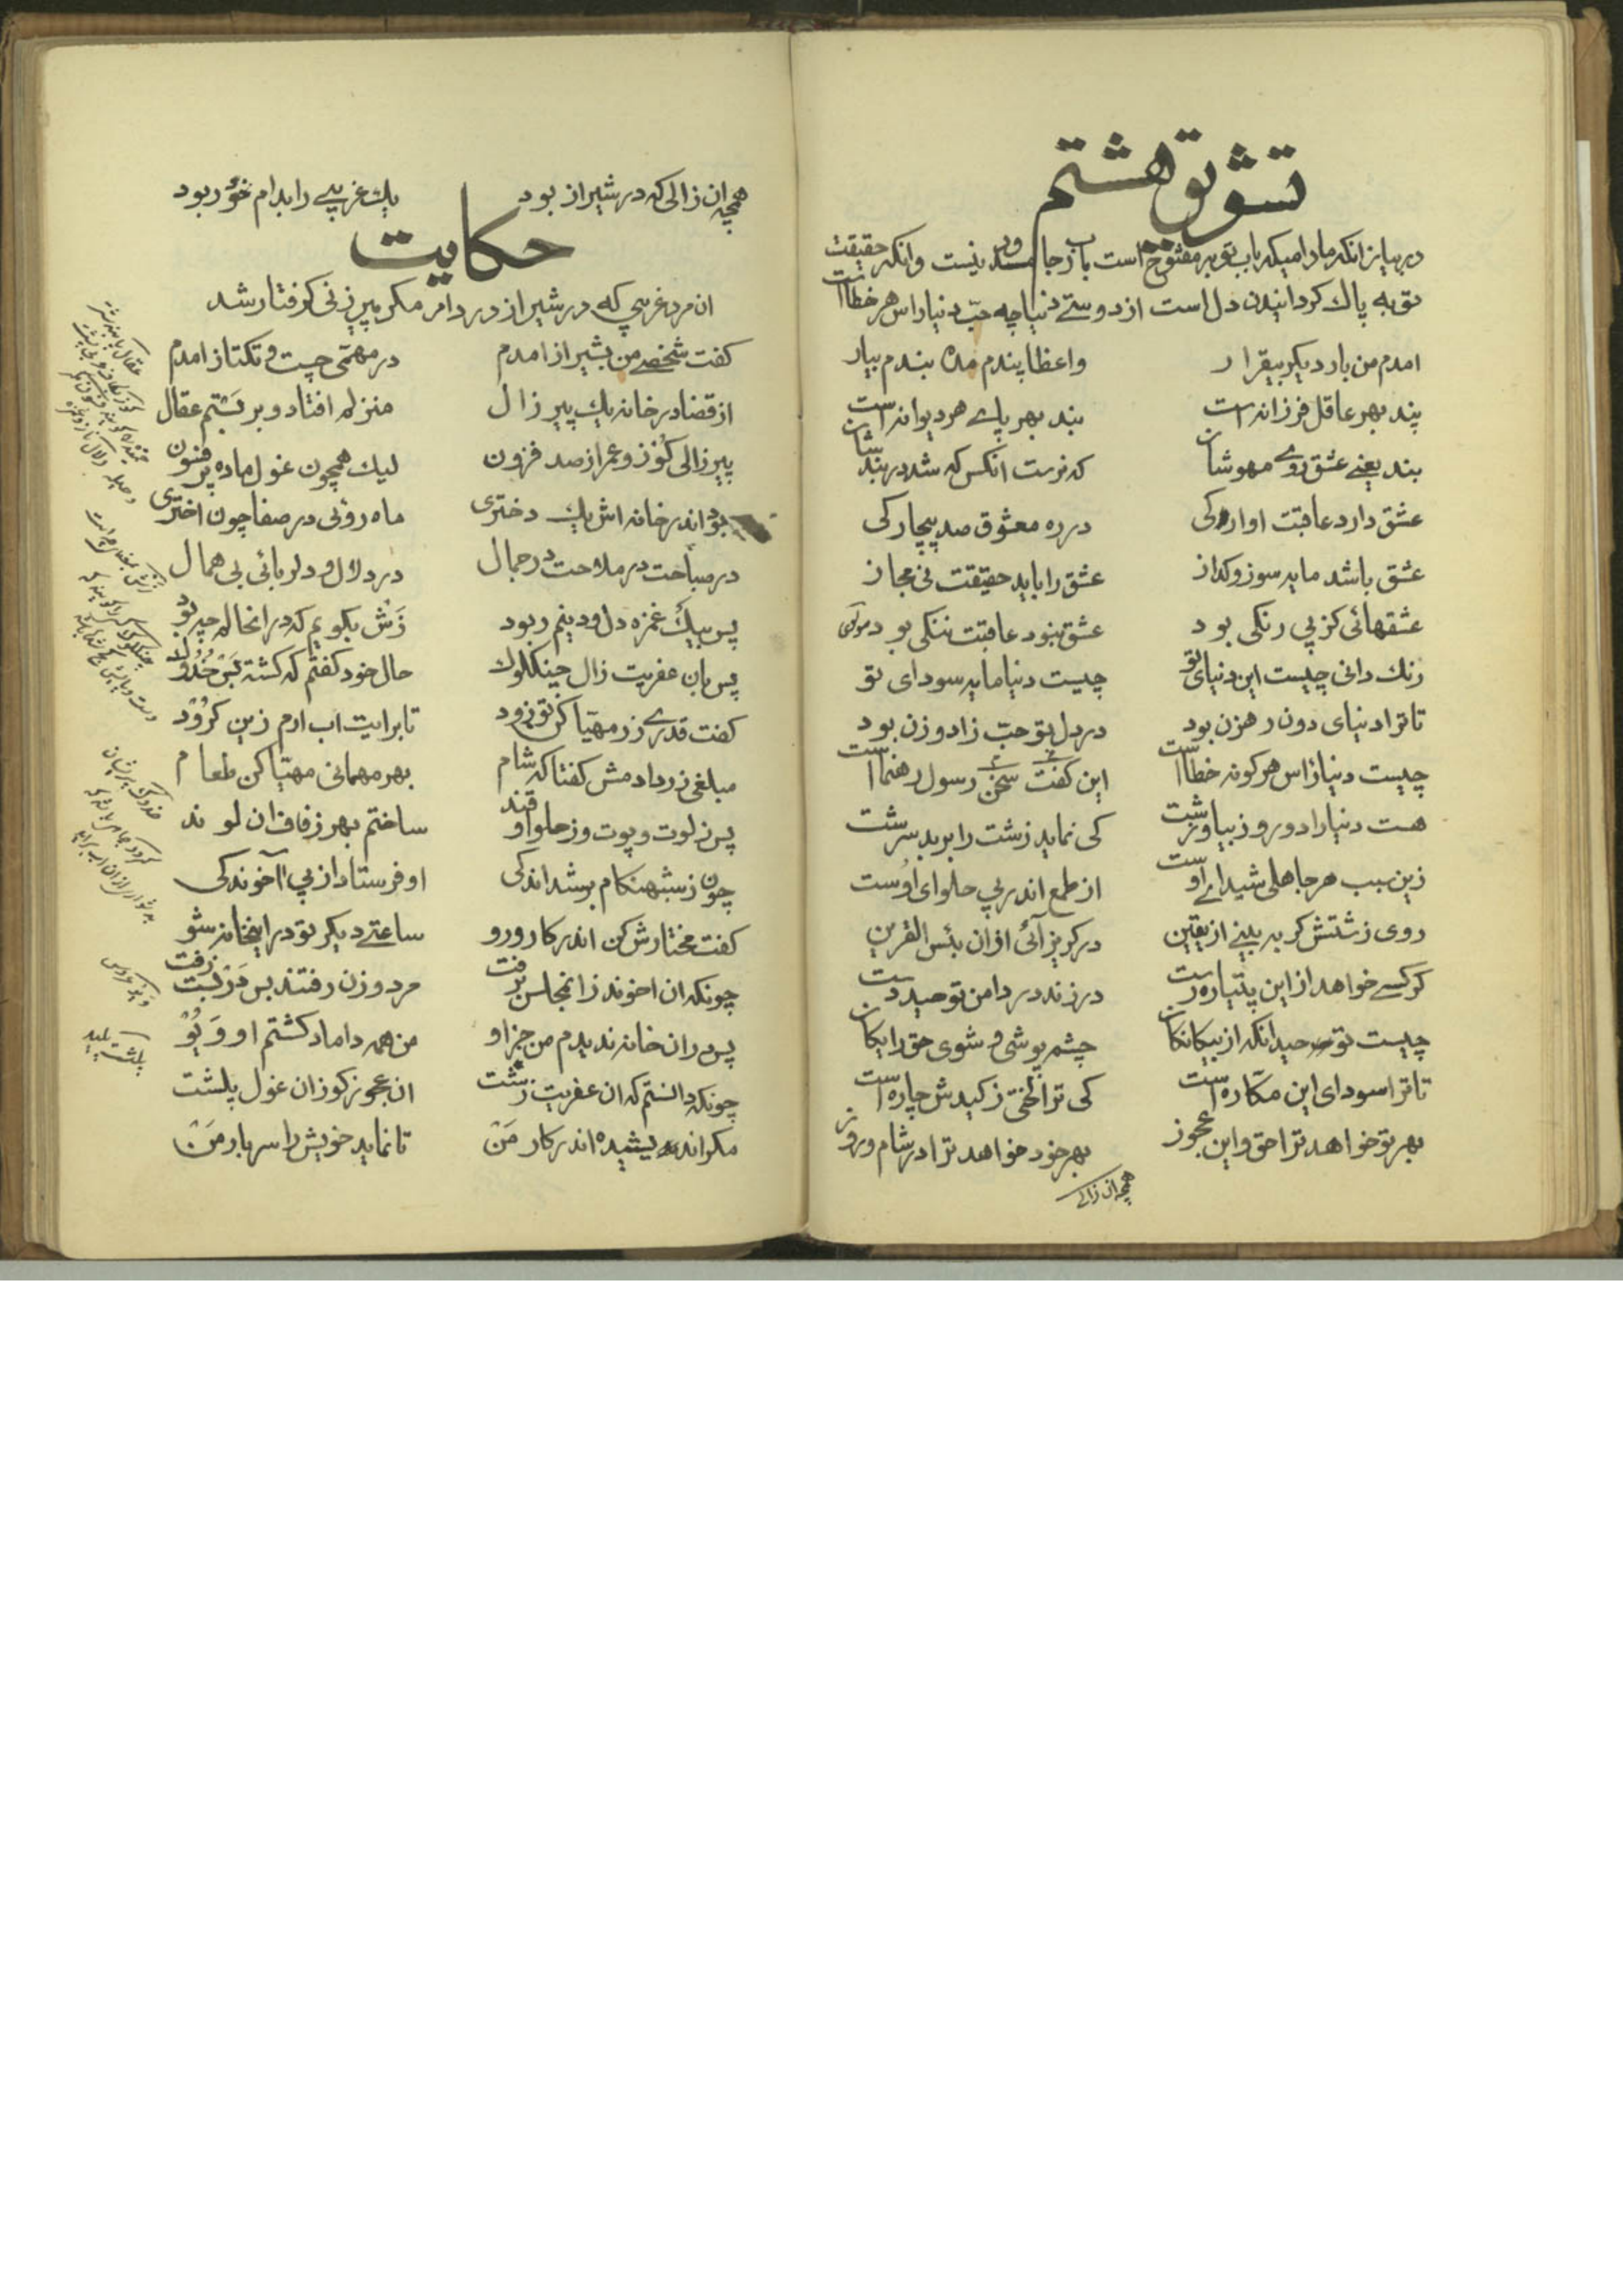 تشویق هشتم
در بیان انکه مادامیکه باب توبه مفتوح است باب رجا مسدود نیست و انکه حقیقت
توبه پاك کردانیدن دل است از دوستے دنیا چه حبّ دنیا راس هر خطاست
امدم من بار دیکر بیقرار واعظا پندم مده بندم بیار
پند بهر عاقل فرزانه است بند بهر پاے هر دیوانه است
بند یعنے عشق روے مهوشان که نرست انکس که شد در بندشان
عشق دارد عاقبت اوارکی در ره معشوق صد بیچارکی
عشق باشد مایه سوز وکداز عشق را باید حقیقت نی مجاز
عشقهائی کز پی رنکی بود عشق نبود عاقبت ننکی بود مولوی
رنك دانی چیست این دنیای تو چیست دنیا مایه سودای تو
تا ترا دنیای دون رهزن بود در دل تو حبّ زاد و زن بود
چیست دنیا راس هر کونه خطاست این سخن کفت رسول رهنماست
هست دنیا را دو رو زیبا و زشت کی نماید زشت را بر بد سرشت
زین سبب هر جاهلی شیداے اوست از طمع اندر پی حلوای اوست
روی زشتش کر به بینے از یقین در کریز آئی از ان بئس القرین
کر کسے خواهد از این پتیاره رست در زند در دامن توحید دست
چیست توحید انکه از بیکانکان چشم پوشی و شوی حق را یکان
تا ترا سودای این مکّاره است کی ترا لختی ز کیدش چاره است
بهر تو خواهد ترا حق و این عجوز بهر خود خواهد ترا در شام و روز
همچه ان زالے
همچه ان زالی که در شیراز بود یك غریبے را بدام خود ربود
حکایت
ان مرد غریبی که در شیراز در دام مکر پیرزنی کرفتار شد
کفت شخصے من بشیراز امدم در مهمّی چست و تکتاز امدم
از قضا در خانه یك پیر زال منزلم افتاد و بر بستم عقال
پیر زالی کوز و عمر از صد فزون لیك همچون غول ماده پر فنون
بود اندر خانه اش یك دختری ماه روئی در صفا چون اختری
در صباحت در ملاحت در جمال در دلال و دلربائی بی همال
پس بیك غمزه دل و دینم ربود زَش بکویم که در انحالم چه بود
پس بان عفریت زال چینکلوك حال خود کفتم که کشته بس خُدُوك
کفت قدرے زر مهیّا کن تو زود تا برایت اب ارم زین کرُود
مبلغی زر دادمش کفتا که شام بهر مهمانی مهیّا کن طعام
پس ز لوت و پوت و ز حلوا و قند ساختم بهر زفاف ان لوند
چون ز شب هنکام بر شد اندکی او فرستاد از پی آخوندکی
کفت مختارش کن اندر کار و رو ساعتے دیکر تو در اینخانه شو
چونکه ان اخوند زانمجلس برفت مرد و زن رفتند پس
پس در ان خانه ندیدم من جز او من همه داماد کشتم او وَیُوْ
چونکه دانستم که ان عفریت زشت ان عجوز کوز ان غول پلشت
مکر اندیشیده اندر کار مَنْ تا نماید خویش را سربار مَنْ